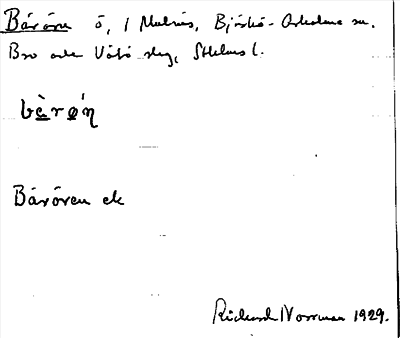 Bårörn ö, / Mulnäs, Björkö-Arholma sn.
Bro och Vätö skg, Sthlms l.
bàrǿn
Båröreu ek
Rickard Norrman 1929.